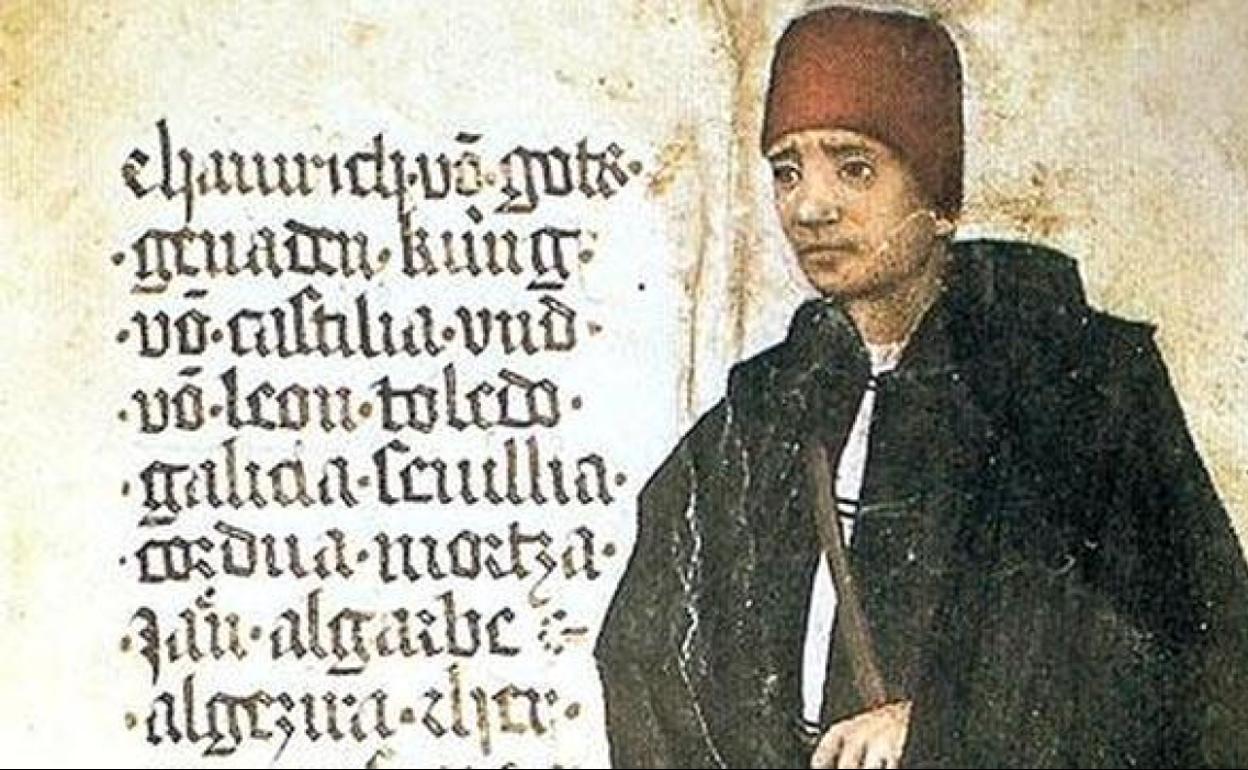 Chainrich·võ·gots·
·genaden·küng·
·võ·castilia·vnd·
·võ·leon·toledo·
·galicia·seuillia·
·cordua·mortza·
·Jaü·algarbe
·algezura·